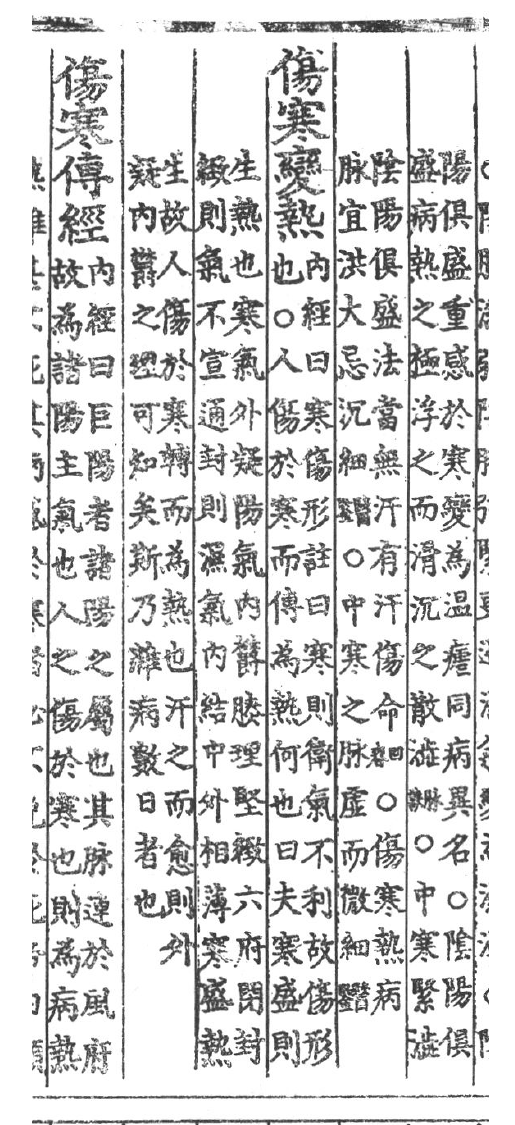 陽俱盛重感於寒變為溫瘧同病異名○陰陽俱
盛病熱之極浮之而滑沉之散澁脉訣○中寒緊澁
陰陽俱盛法當無汗有汗傷命回春○傷寒熱病
脉宜洪大忌沉細醫鑑○中寒之脉虛而微細醫鑑
傷寒變熱
內經曰寒傷形註曰寒則衛氣不利故傷形
也○人傷於寒而傳為熱何也曰夫寒盛則
生熱也寒氣外疑陽氣內欝腠理堅緻六府閉封
緻則氣不宣通封則濕氣內結中外相薄寒盛熱
生故人傷於寒轉而為熱也汗之而愈則外
疑內欝之理可知矣斯乃雜病數日者也
傷寒傳經
內經曰巨陽者諸陽之屬也其脉連於風府
故為諸陽主氣也人之傷於寒也則為病熱